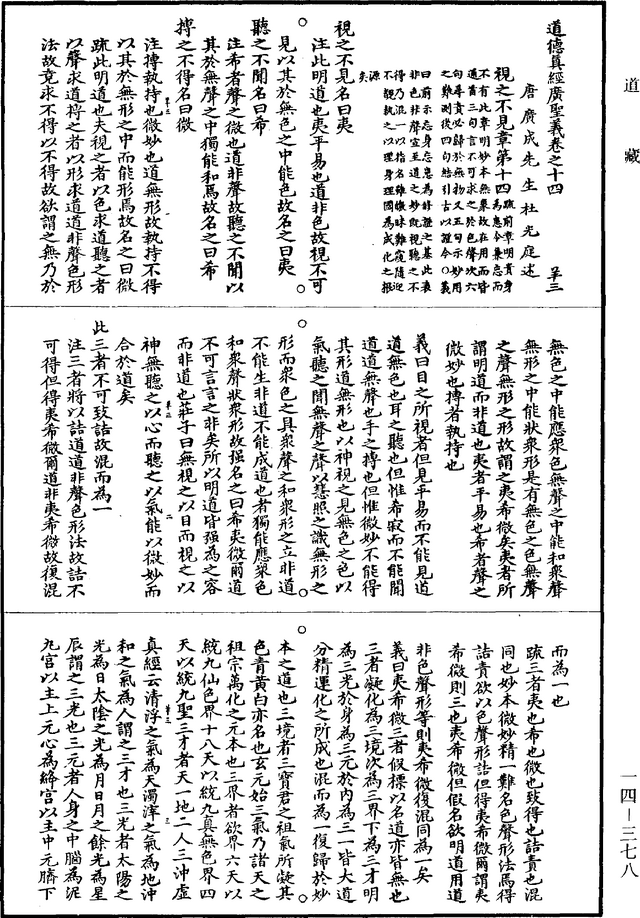 道藏
一四－三七八
道德真經廣聖義卷之十四　羊三
唐廣成先生杜光庭述
視之不見章第十四
視之不見名曰夷
注此明道也夷平易也道非色故視不可
見以其於無色之中能色故名之曰夷
聽之不聞名曰希
注希者聲之微也道非聲故聽之不聞以
其於無聲之中獨能和焉故名之曰希
搏之不得名曰微
注搏執持也微妙也道無形故執持不得
以其於無形之中而能形焉故名之曰微
疏此明道也夫視之者以色求道聽之者
以聲求道搏之者以形求道道非聲色形
法故竟求不得以不得故欲謂之無乃於
無色之中能應衆色無聲之中能和衆聲
無形之中能狀衆形是有無色之色無聲
之聲無形之形故謂之夷希微矣夷者所
謂明道而非道也夷者平易也希者聲之
微妙也搏者執持也
義曰目之所視者但見平易而不能見道
道無色也耳之聽也但惟希寂而不能聞
道道無聲也手之搏也但惟微妙不能得
其形道無形也以神視之見無色之色以
氣聽之聞無聲之聲以慧照之識無形之
形而衆色之具衆聲之和衆形之立非道
不能生非道不能成道也者獨能應衆色
和衆聲狀衆形故强名之曰希夷微爾道
不可言言之非矣所以明道皆强爲之容
而非道也莊子曰無視之以目而視之以
神無聽之以心而聽之以氣能以微妙而
合於道矣
此三者不可致詰故混而為一
注三者將以詰道道非聲色形法故詰不
可得但得夷希微爾道非夷希微故復混
而為一也
疏三者夷也希也微也致得也詰責也混
同也妙本微妙精一難名色聲形法焉得
詰責欲以色聲形詰但得夷希微爾謂夷
希微則三也夷希微但假名欲明道用道
非色聲形等則夷希微復混同為一矣
義曰夷希微三者假標以名道亦皆無也
三者凝化為三境次為三界下為三才明
為三光於身為三元於內為三一皆大道
分精運化之所成也混而為一復歸於妙
本之道也三境者三寶君之祖氣所凝其
色青黃白亦名也玄元始三氣乃諸天之
祖宗萬化之元本也三界者欲界六天以
統九仙色界十八天以統九真無色界四
天以統九聖三才者天一地二人三沖虛
真經云清浮之氣為天濁滓之氣為地沖
和之氣為人謂之三才也三光者太陽之
光為日太陰之光為月日月之餘光為星
辰謂之三光也三元者人身之中腦為泥
丸宫以主上元心為絳宫以主中元臍下